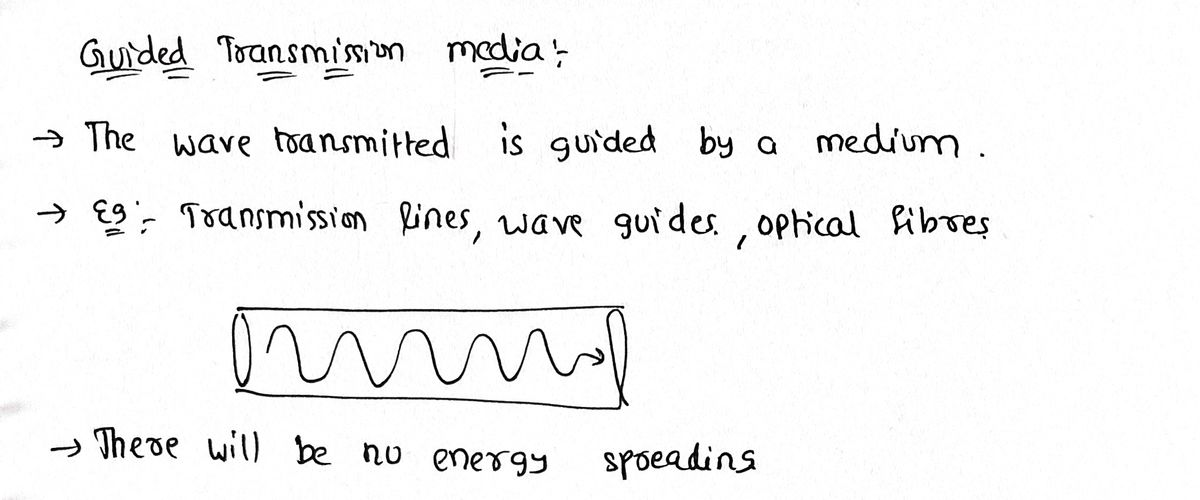 Guided Transmission media :-
→ The wave transmitted is guided by a medium.
→ Eg :- Transmission lines, wave guides, optical fibres
→ There will be no energy spreading